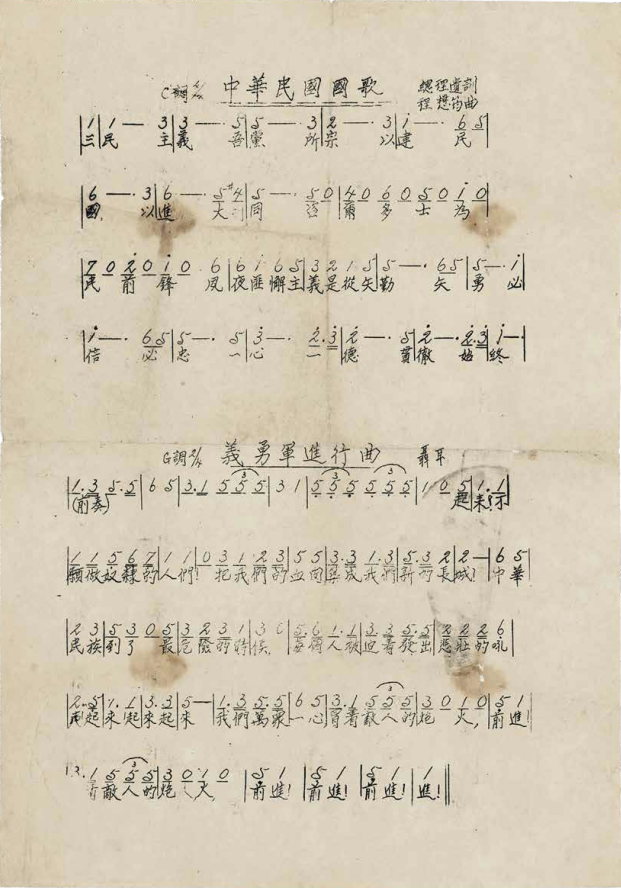 C調4/4 中華民國國歌 總理遺訓
程懋筠曲
|1|1 — 3|3 — · 5|5 — · 3|2 — · 3|1 — · 6 5|
三民 主義 吾黨 所宗 以建 民
|6 — · 3|6 — · 5 #4|5 — · 5 0|4 0 6 0 5 0 1 0|
國 以進 大 同 咨 爾 多 士 為
|7 0 2 0 1 0 · 6|6 1 6 5|3 2 1 5|5 — · 6 5|5 — · 1|
民 前 鋒 夙夜匪懈主義是從矢勤 矢勇 必
|1 — · 6 5|5 — · 5|3 — · 2 · 3|2 — · 5|2 — · 2 · 3|1 — ·|
信 必忠 一心 一德 貫徹 始終
G調2/4 義勇軍進行曲 聶耳
|1 · 3 5 · 5|6 5|3 · 1 5 5 5|3 1|5 5 5 5 5 5|1 0 5|1 · 1|
(前奏) 起來!不
|1 1 5 6 7|1 1|0 3 1 2 3|5 5|3 · 3 1 · 3|5 · 3 2|2 —|6 5|
願做奴隸的人們! 把我們的血肉築成我們新的長城! 中華
|2 3|5 3 0 5|3 2 3 1|3 0|5 · 6 1 · 1|3 3 5 · 5|2 2 2 6|
民族到了 最危險的時候, 每個人被迫著發出 的吼
|2 · 5|1 · 1|3 · 3|5 —|1 · 3 5 · 5|6 5|3 · 1 5 5 5|3 0 1 0|5 1|
起來!起來起來 我們萬眾一心冒着敵人的炮 火, 前進!
1 5 5 5|3 0 1 0 |5 1|5 1|5 1|1||
着敵人的炮 火 前進! 前進! 前進! 進!